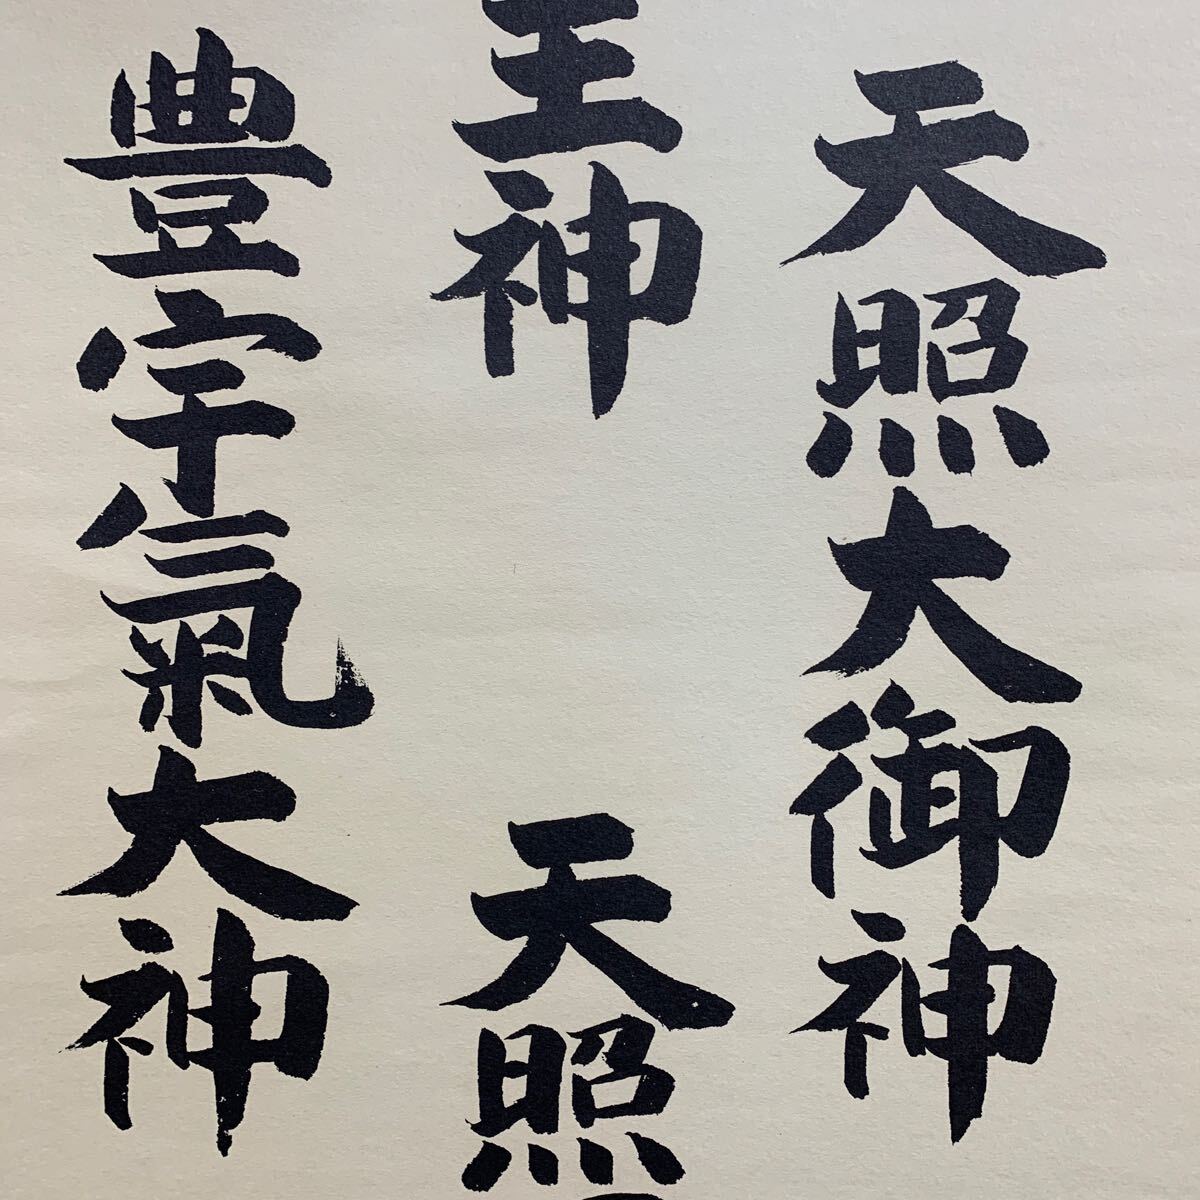 天照大御神
主神
天照
豊宇氣大神